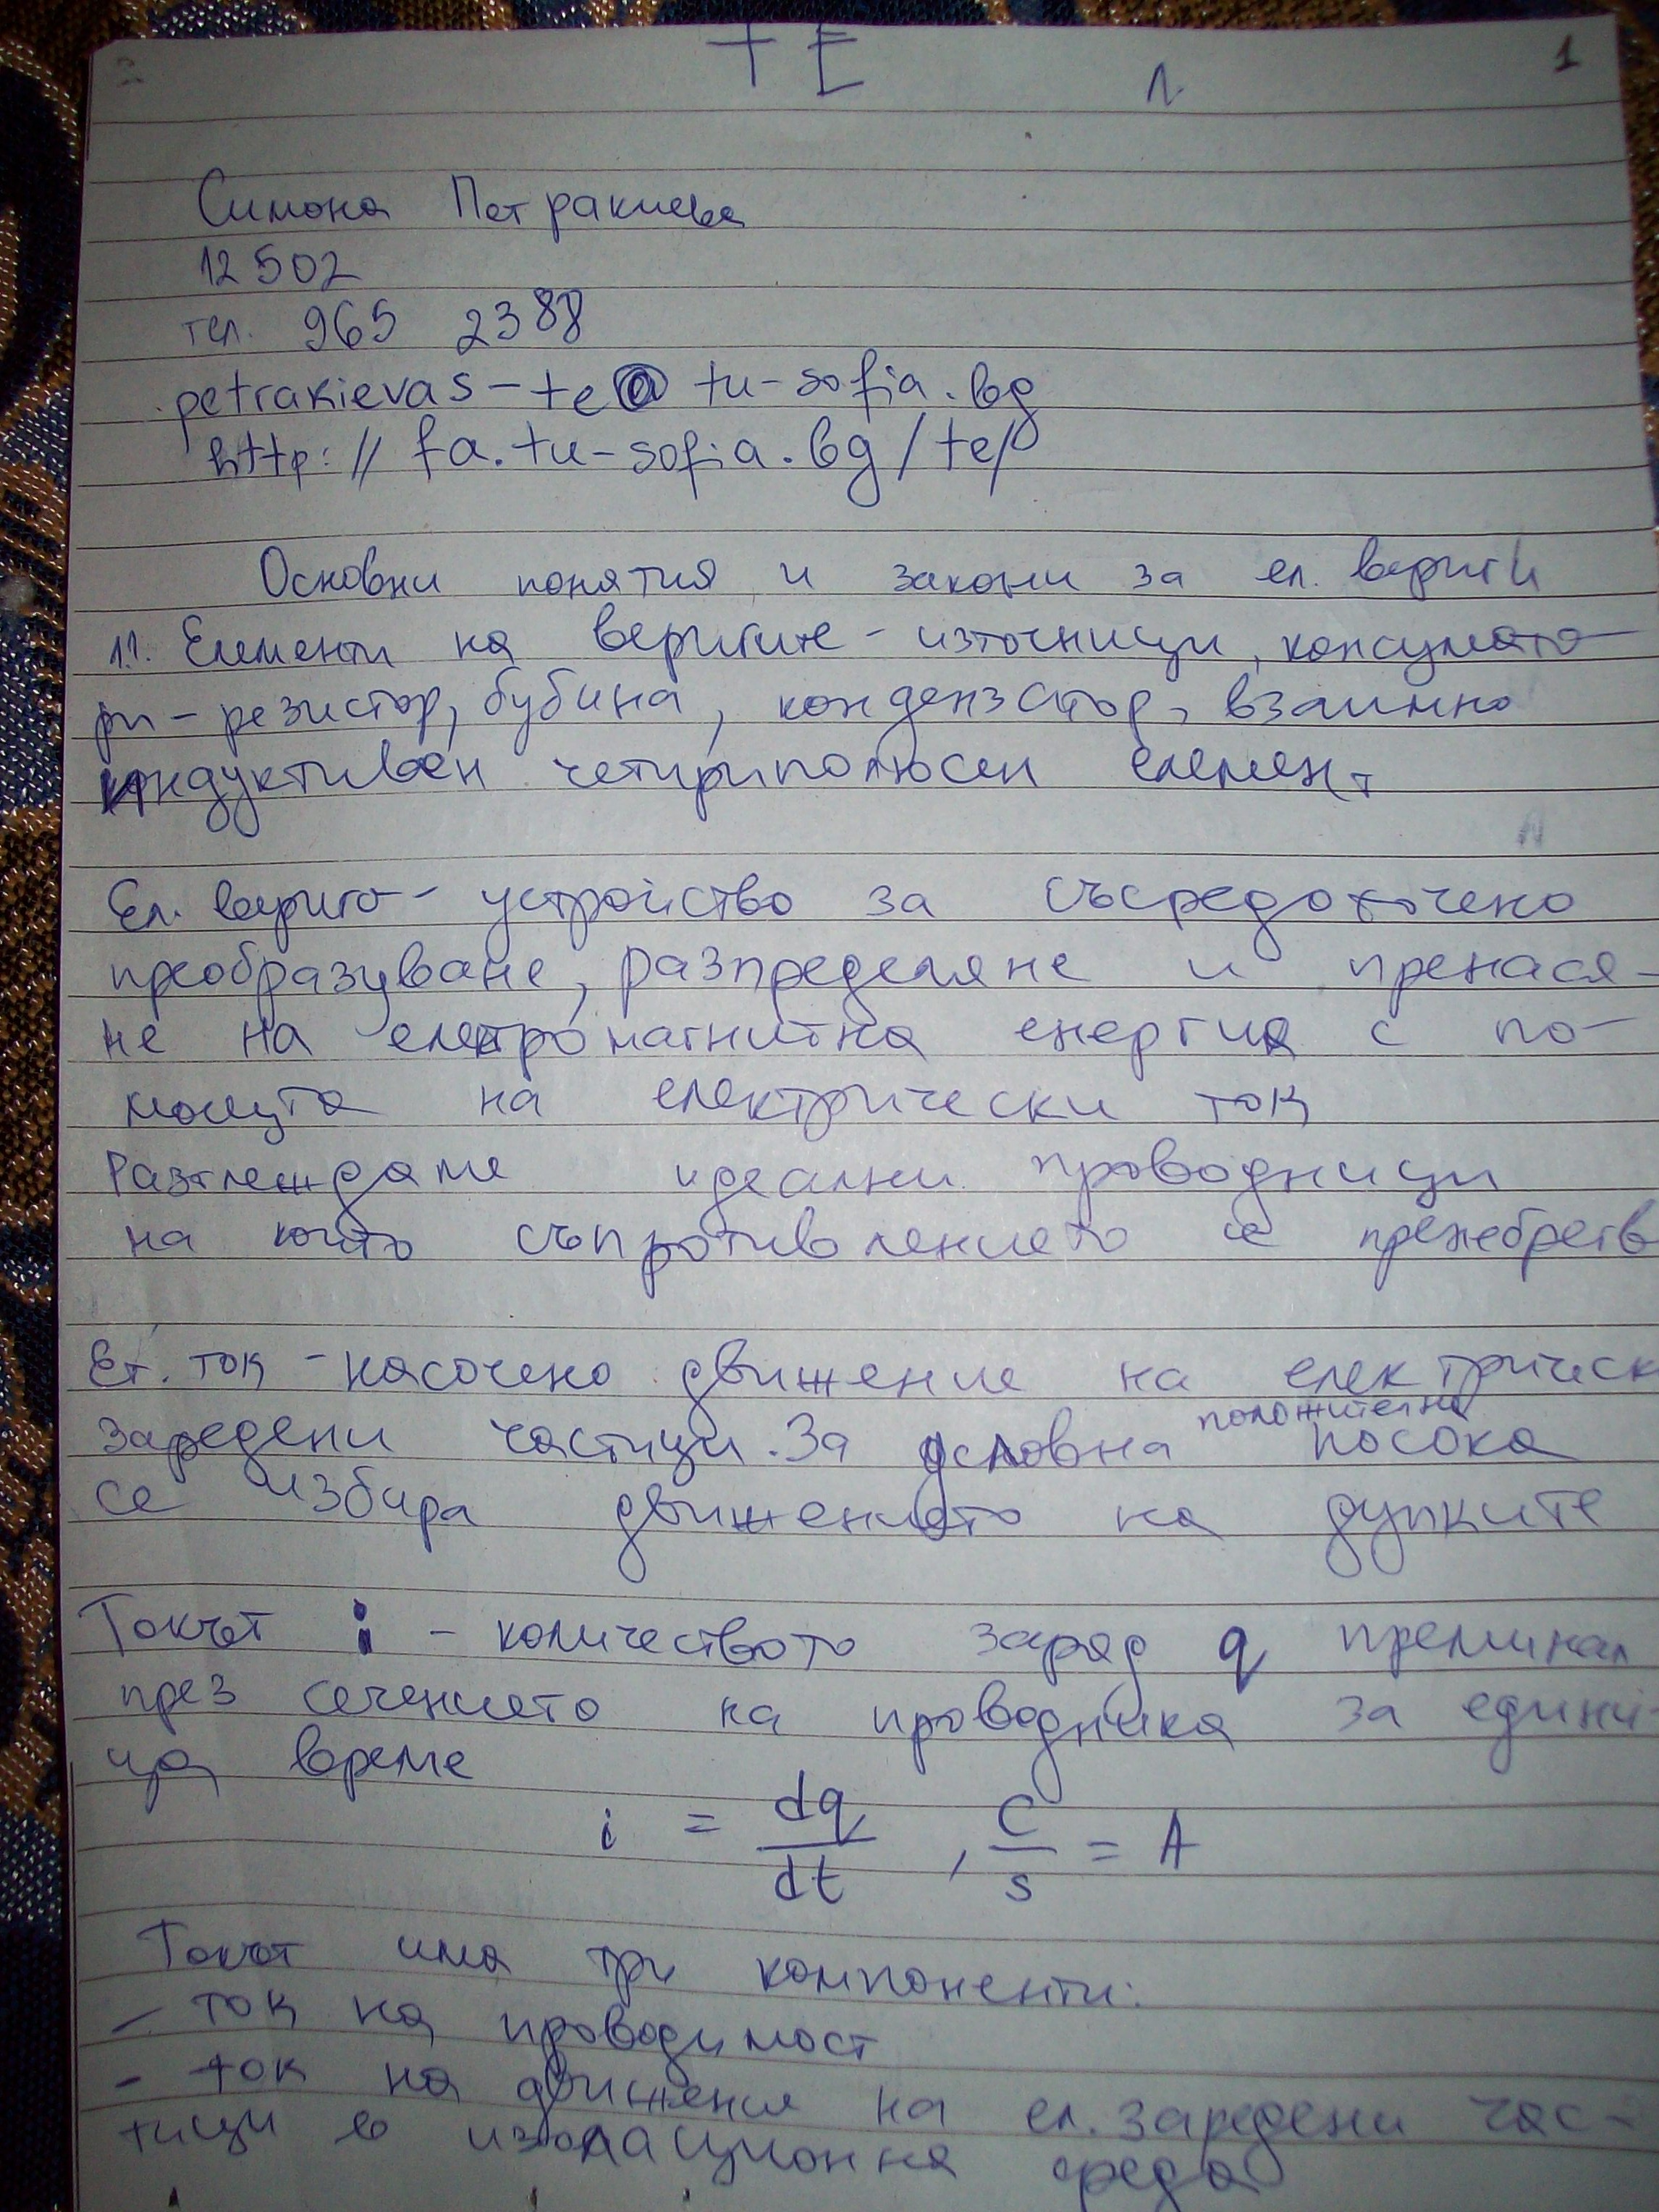 ТЕ 1
Симона Петракиева
12502
тел. 965 2388
petrakievas-te@tu-sofia.bg
http://fa.tu-sofia.bg/te/
Основни понятия и закони за ел. вериги
1.1. Елементи на веригите - източници, консумато-
ри - резистор, бубина, кондензатор, взаимно
индуктивен четириполюсен елемент
Ел. верига - устройство за съсредоточено
преобразуване, разпределяне и пренася-
не на електромагнитна енергия с по-
мощта на електрически ток
Разглеждаме идеални проводници
на които съпротивлението се пренебрегв
Ел. ток - насочено движение на електрическ
положителна
заредени частици. За условна посока
се избира движението на дупките
Токът i - количеството заряд q преминал
през сечението на проводника за едини-
ца време
i = dq/dt , C/s = A
Токът има три компоненти:
- ток на проводимост
- ток на движения на ел. заредени час-
тици в изолационна среда